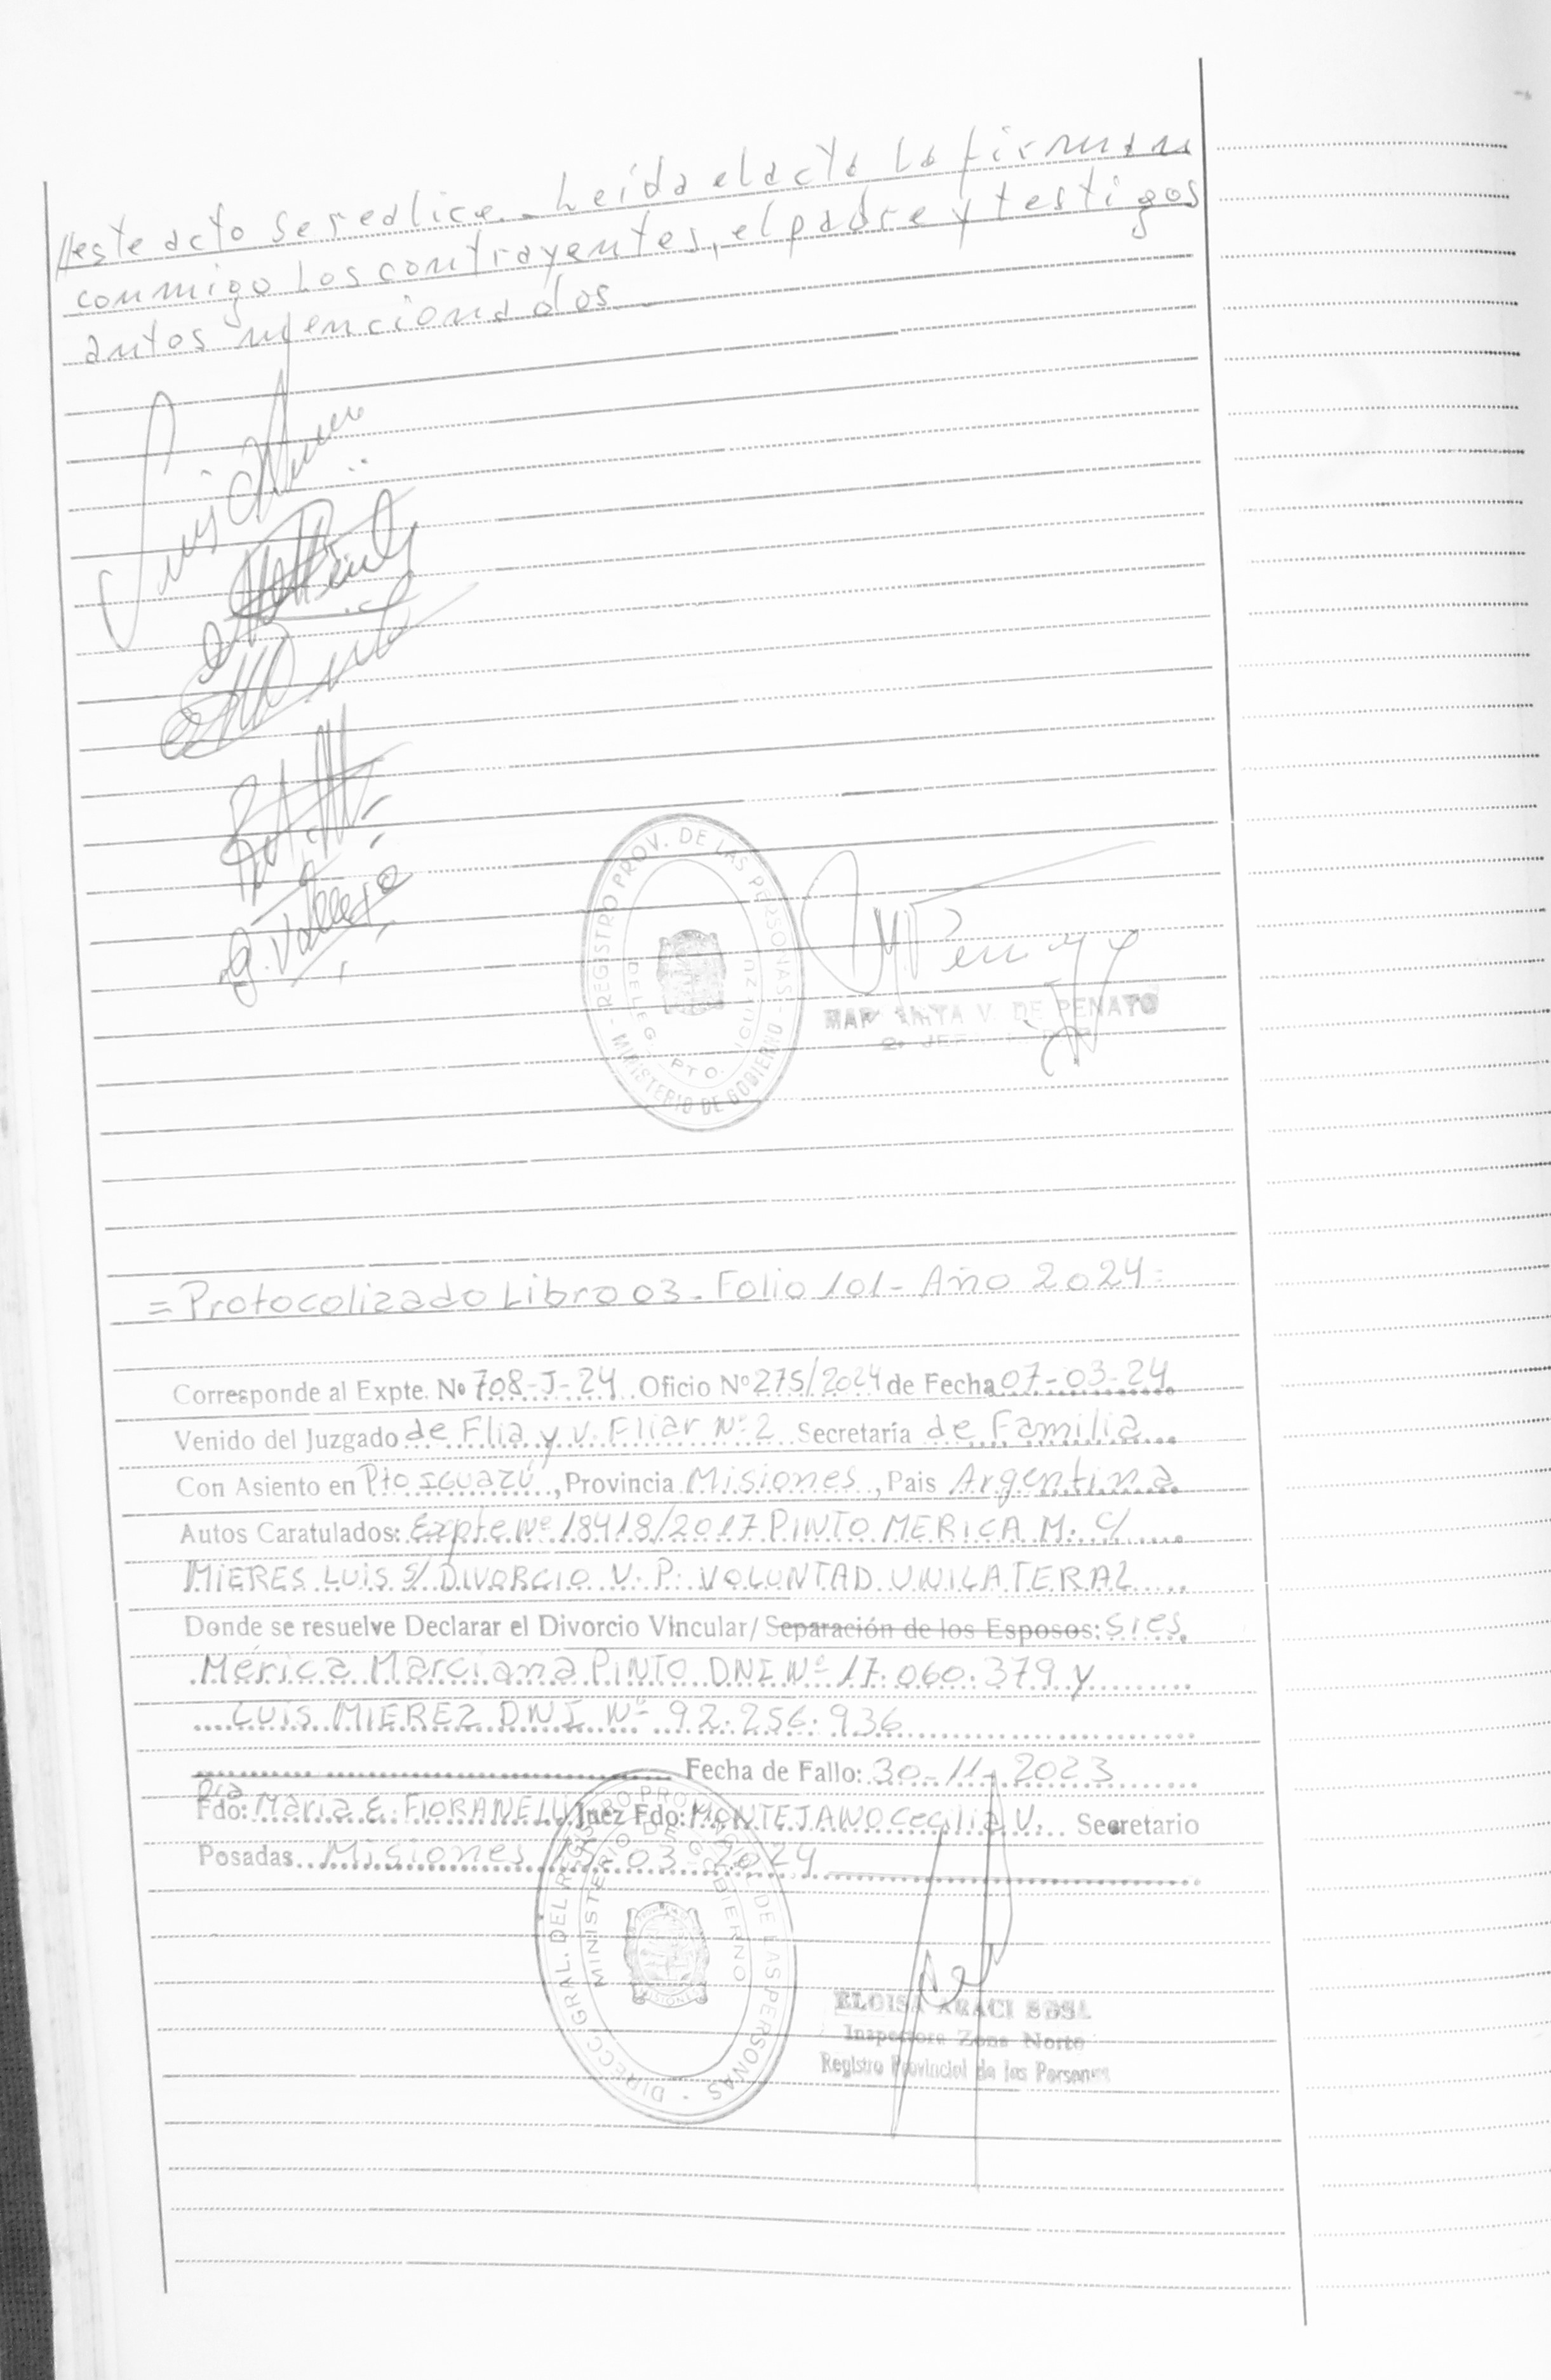 //este acto se realice.- Leída el acta la firman
conmigo Los contrayentes, el padre y testigos
antes mencionados.-
G. Vallejo
REGISTRO PROV. DE LAS PERSONAS - MINISTERIO DE GOBIERNO
DELEG. PTO.
V. DE PENATO
=Protocolizado Libro 03 - Folio 101 - Año 2024=
Corresponde al Expte. Nº 708-J-24 Oficio Nº 275/2024 de Fecha 07-03-24
Venido del Juzgado de Flia y V. Fliar Nº 2 Secretaría de Familia
Con Asiento en Pto Iguazú, Provincia Misiones, Pais Argentina
Autos Caratulados: Expte Nº 18418/2017 PINTO MERICA M. C/
MIERES LUIS S/ DIVORCIO V. P. VOLUNTAD UNILATERAL
Donde se resuelve Declarar el Divorcio Vincular/ Separación de los Esposos: Sres.
Mérica Marciana PINTO DNI Nº 17.060.379 y
LUIS MIEREZ DNI Nº 92.256.936
Fecha de Fallo: 30-11-2023
Dra
Fdo: María E. FIORANELLI Juez Fdo: MONTEJANO Cecilia V. Secretario
Posadas Misiones 03-2024
DIRECC. GRAL. DEL REGISTRO PROVINCIAL DE LAS PERSONAS -
MINISTERIO DE GOBIERNO
ELOISA ARACI SOSA
Inspectora Zona Norte
Registro Provincial de las Personas